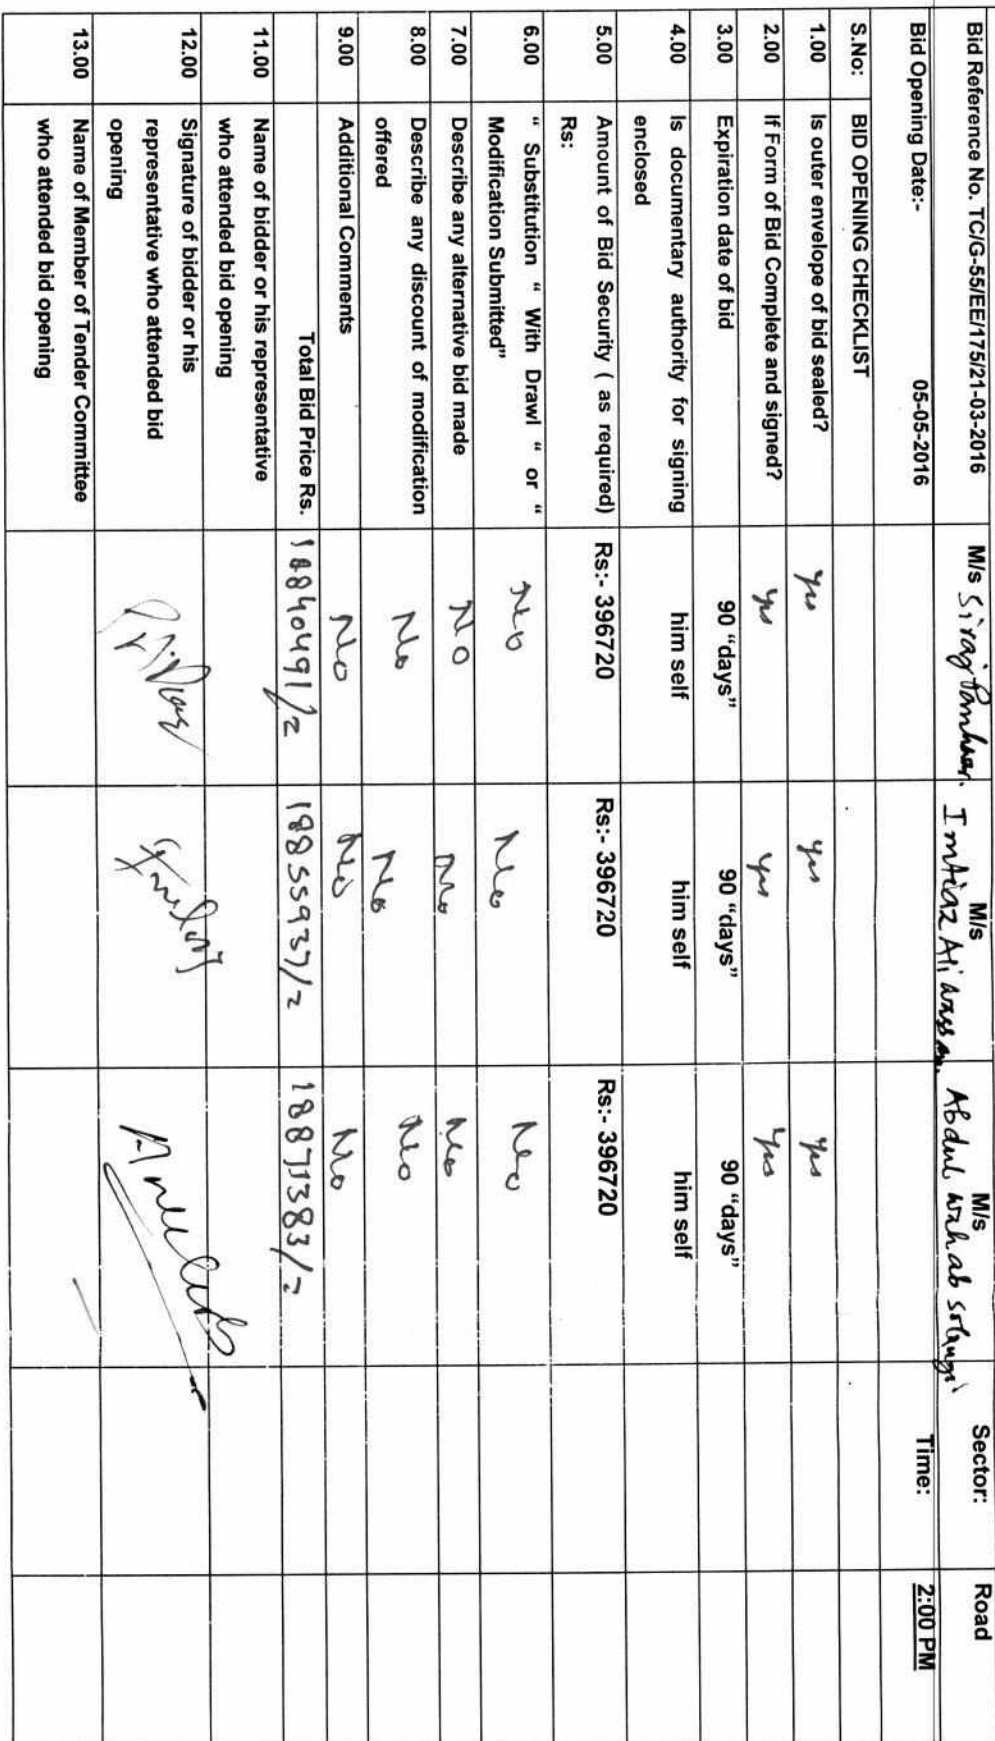 Bid Reference No. TC/G-55/EE/175/21-03-2016 M/s Siraj Panhwar. M/s Imtiaz Ali M/s Abdul wahab solangi Sector: Road
Bid Opening Date:- 05-05-2016 Time: 2:00 PM
S.No: BID OPENING CHECKLIST
1.00 Is outer envelope of bid sealed? Yes Yes Yes
2.00 If Form of Bid Complete and signed? Yes Yes Yes
3.00 Expiration date of bid 90 “days” 90 “days” 90 “days”
4.00 Is documentary authority for signing him self him self him self
enclosed
5.00 Amount of Bid Security ( as required) Rs:- 396720 Rs:- 396720 Rs:- 396720
Rs:
6.00 “ Substitution “ With Drawl “ or “ No No No
Modification Submitted”
7.00 Describe any alternative bid made No No No
8.00 Describe any discount of modification No No No
offered
9.00 Additional Comments No No No
Total Bid Price Rs. 18840491/= 18855937/= 18871383/=
11.00 Name of bidder or his representative
who attended bid opening
12.00 Signature of bidder or his
representative who attended bid
opening
13.00 Name of Member of Tender Committee
who attended bid opening